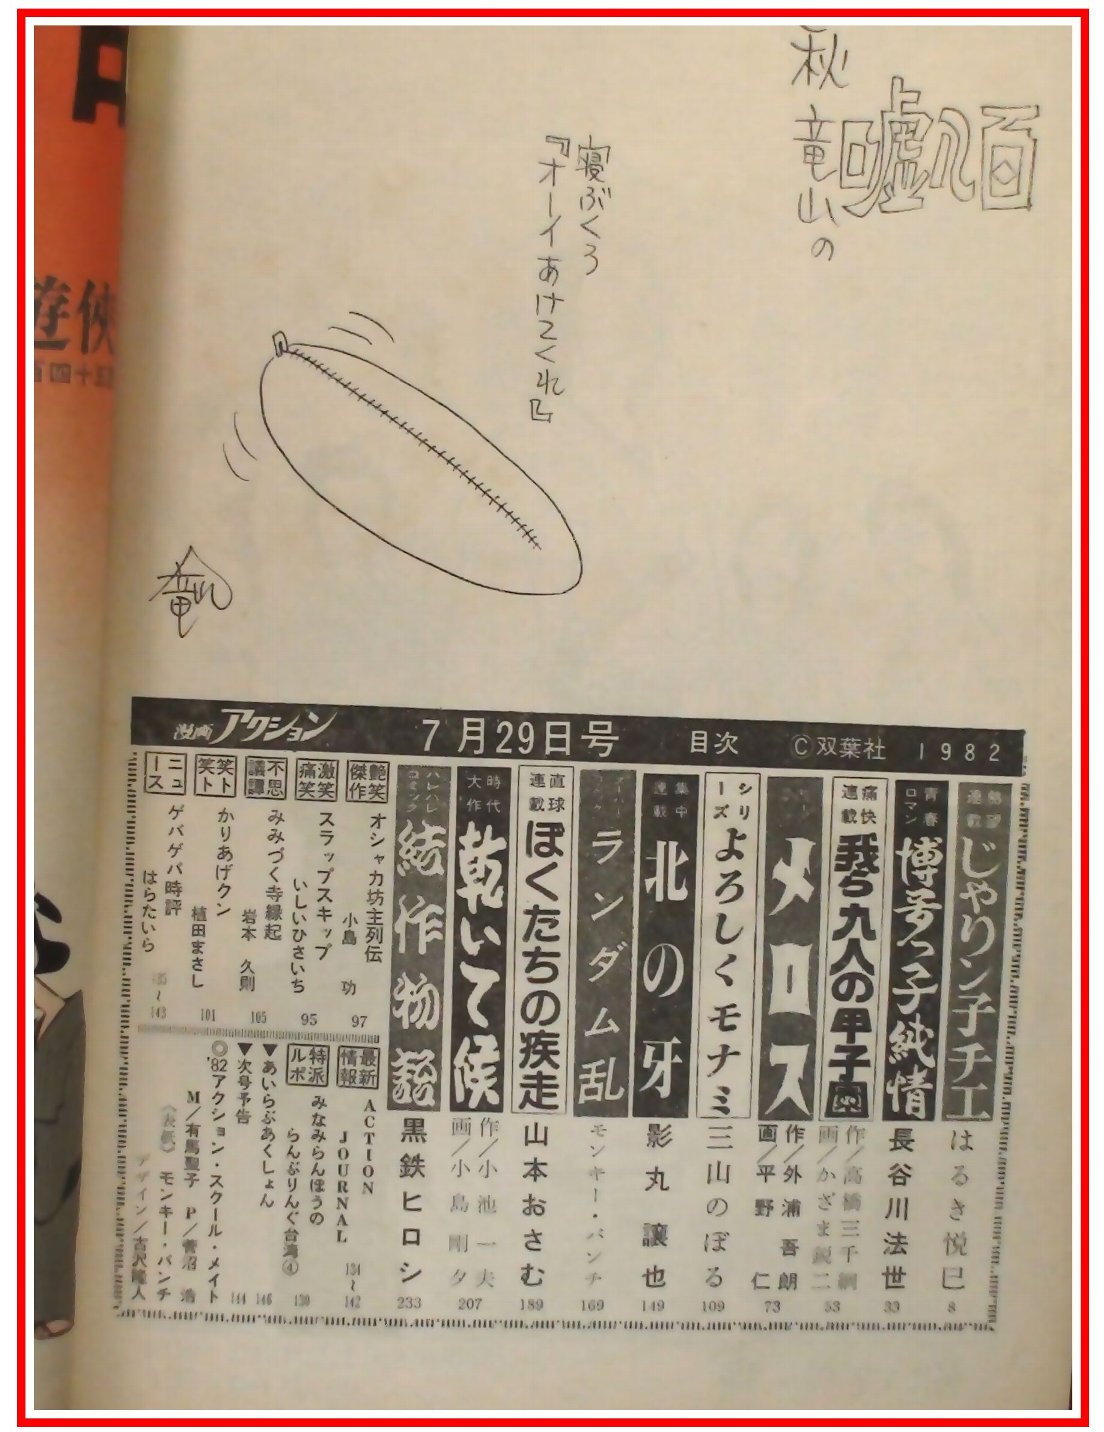 秋竜山の
嘘八百
寝ぶくろ
『オーイあけてくれ』
遊侠
百四十五
漫画アクション 7月29日号 目次 ©双葉社 1982
連載 じゃりン子チエ はるき悦巳 8
青春ロマン 博多っ子純情 長谷川法世 33
痛快連載 我ら九人の甲子園 作/高橋三千綱 画/かざま鋭二 53
メロス 作/外浦吾朗 画/平野仁 73
シリーズ よろしくモナミ 三山のぼる 109
集中連載 北の牙 影丸譲也 149
ランダム乱 モンキー・パンチ 169
直球連載 ぼくたちの疾走 山本おさむ 189
時代大作 乾いて候 作/小池一夫 画/小島剛夕 207
結作物語 黒鉄ヒロシ 233
艶笑傑作 オシャカ坊主列伝 小島功 97
激笑痛笑 スラップスキップ いしいひさいち 95
不思議譚 みみづく寺縁起 岩本久則 105
笑ト笑ト かりあげクン 植田まさし 101
ニュース ゲバゲバ時評 はらたいら 135〜143
最新情報 ACTION JOURNAL 134〜142
特派ルポ みなみらんぼうの らんぶりんぐ台湾④ 130
▼あいらぶあくしょん 146
▼次号予告 144
◎'82アクション・スクール・メイト
M/有馬聖子 P/菅沼浩
〈表紙〉モンキー・パンチ
デザイン/古沢隆人